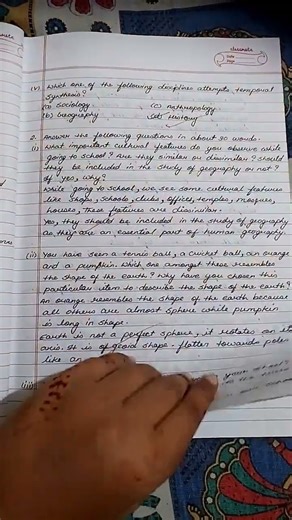 classmate
Date
Page
(v) Which one of the following disciplines attempts temporal
synthesis?
(a) Sociology (c) Anthropology
(b) Geography (d) History
2. Answer the following questions in about 30 words.
(i) What important cultural features do you observe while
going to school? Are they similar or dissimilar? Should
they be included in the study of geography or not?
If yes, why?
While going to school, we see some cultural features
like shops, schools, clubs, offices, temples, mosques,
houses, These features are dissimilar.
Yes, they should be included in the study of geography
as they are an essential part of human geography.
(ii) You have seen a tennis ball, a cricket ball, an orange
and a pumpkin. Which one amongst these resembles
the shape of the earth? Why have you chosen this
particular item to describe the shape of the earth?
An orange resembles the shape of the earth because
all others are almost sphere while pumpkin
is long in shape.
Earth is not a perfect sphere, it rotates on its
axis. It is of geoid shape - flatten towards poles
like an
(iii)